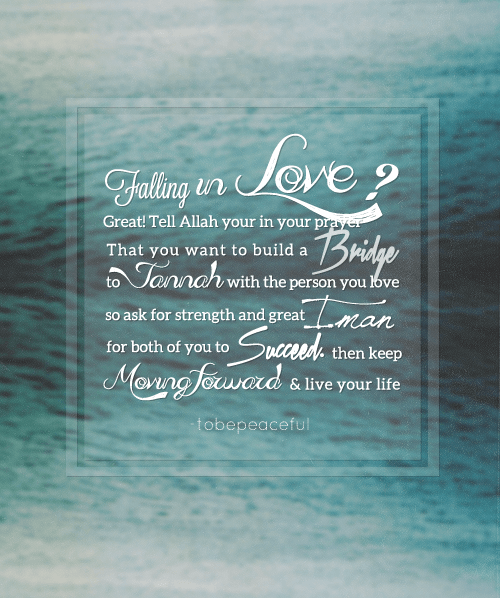 Falling in Love?
Great! Tell Allah your in your prayer
That you want to build a Bridge
to Jannah with the person you love
so ask for strength and great Iman
for both of you to Succeed. then keep
Moving forward & live your life
-tobepeaceful